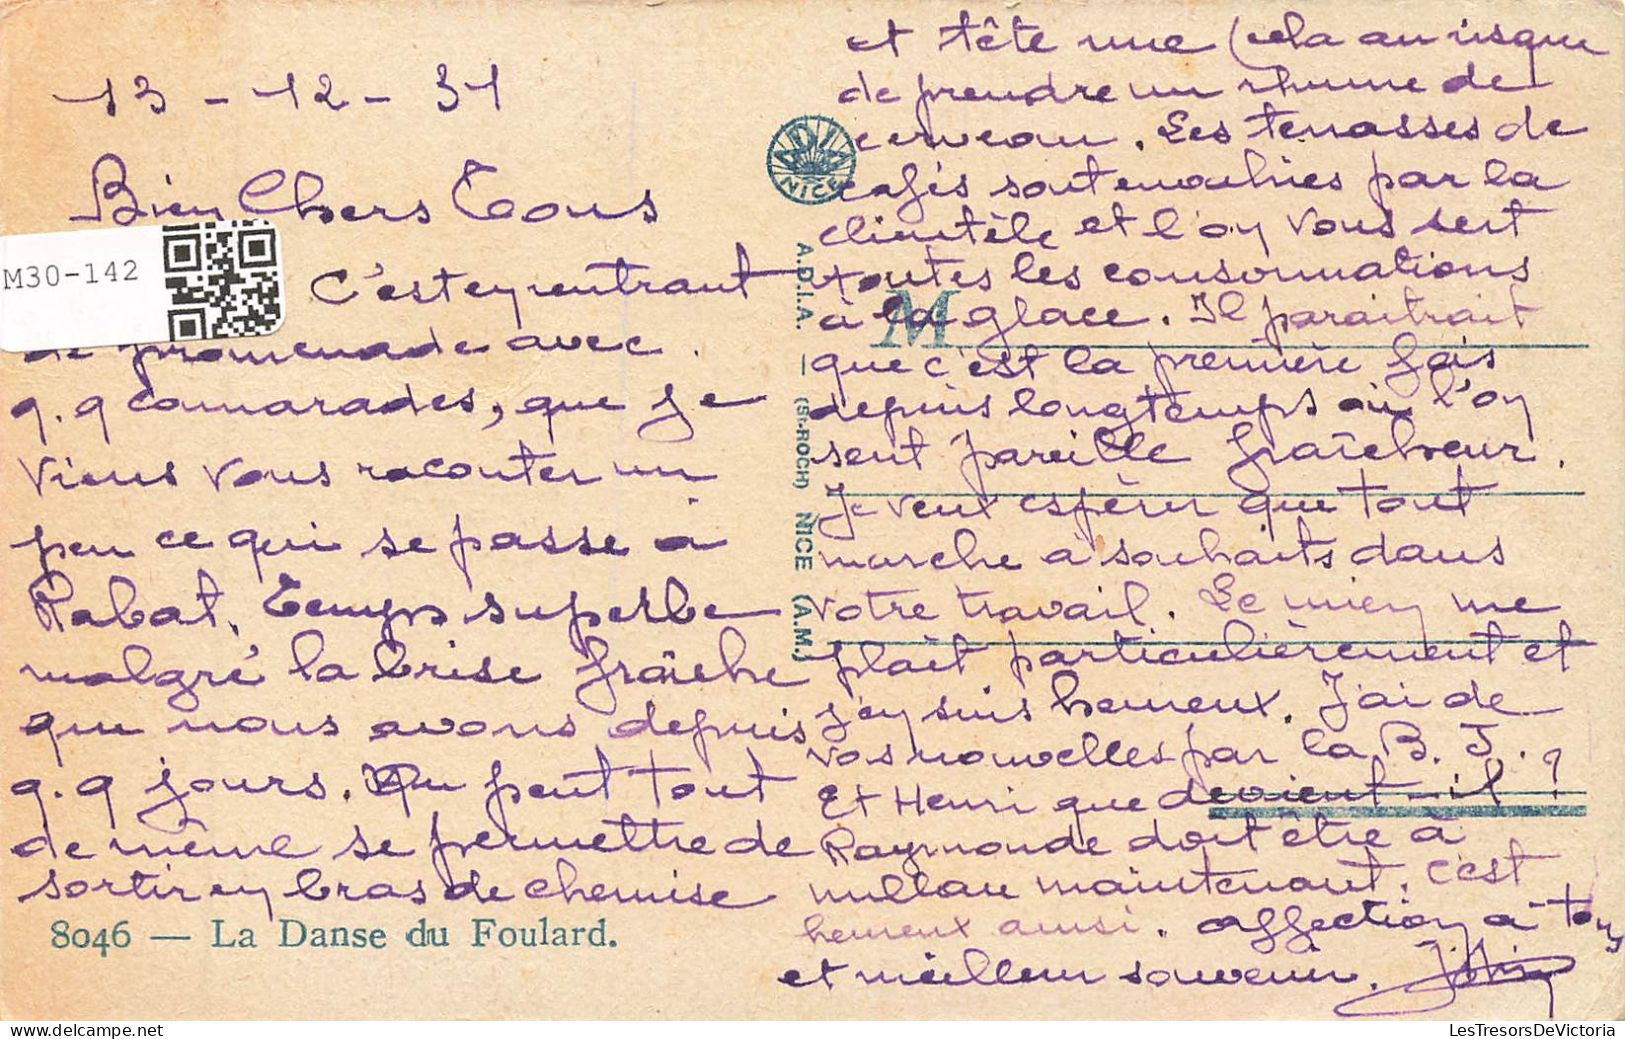 13 - 12 - 31
Bien Chers Tous
M30-142
C'est en rentrant
de promenade avec
q.q camarades, que je
viens vous raconter un
peu ce qui se passe à
Rabat. Temps superbe
malgré la brise fraîche
que nous avons depuis
q.q jours. On peut tout
de même se permettre de
sortir en bras de chemise
8046 — La Danse du Foulard.
ADIA
NICE
A.D.I.A. — (St-ROCH) NICE (A.M.)
M
et tête nue (cela au risque
de prendre un rhume de
cerveau. Les terrasses de
cafés sont envahies par la
clientèle et l'on vous sert
toutes les consommations
à la glace. Il paraitrait
que c'est la première fois
depuis longtemps où l'on
sent pareille fraîcheur.
Je veux espérer que tout
marche à souhaits dans
votre travail. Le mien me
plaît particulièrement et
j'en suis heureux. J'ai de
vos nouvelles par la B. J.
Et Henri que devient-il ?
Raymonde doit être à
Millau maintenant. C'est
heureux ainsi. Affection à tous
et meilleur souvenir.
LesTresorsDeVictoria.com